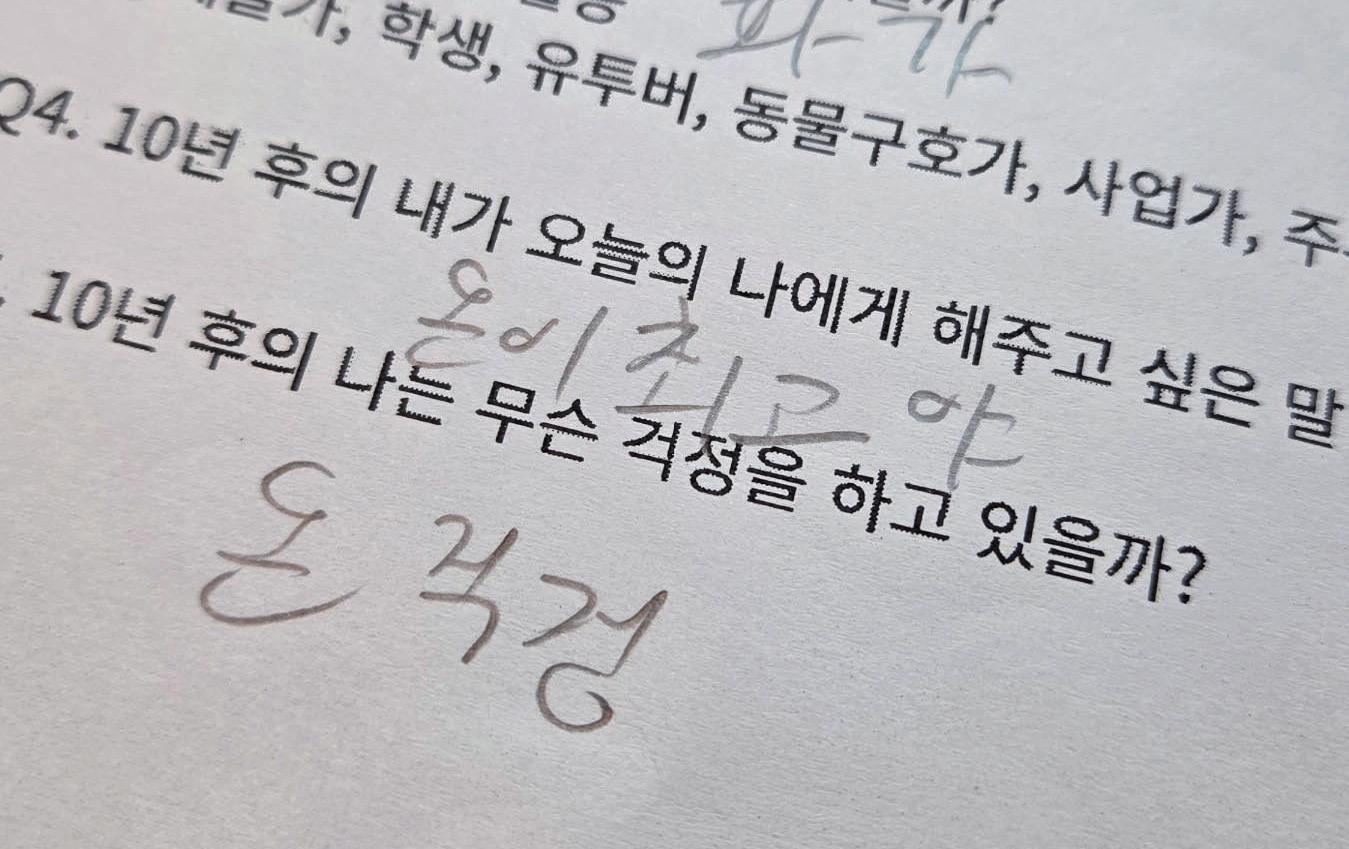 화가
학생, 유투버, 동물구호가, 사업가,
Q4. 10년 후의 내가 오늘의 나에게 해주고 싶은 말
돈이 최고야
10년 후의 나는 무슨 걱정을 하고 있을까?
돈 걱정